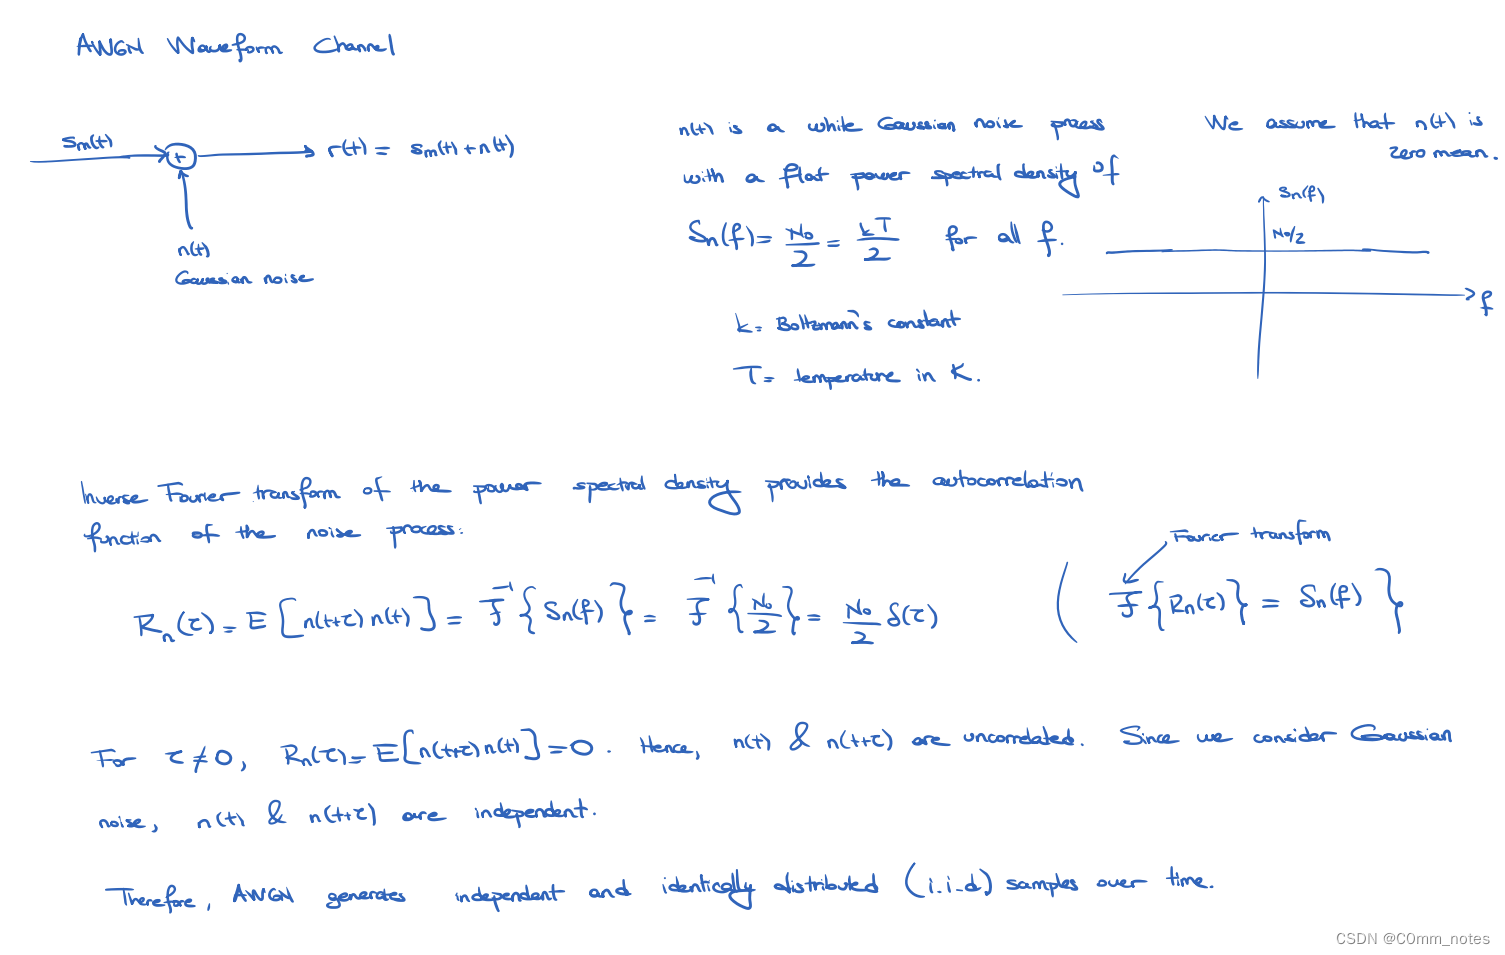 AWGN Waveform Channel
sₘ(t)
+
r(t) = sₘ(t) + n(t)
n(t)
Gaussian noise
n(t) is a white Gaussian noise process
with a flat power spectral density of
Sₙ(f) = N₀/2 = kT/2 for all f.
k = Boltzmann's constant
T = temperature in K.
We assume that n(t) is
zero mean.
Sₙ(f)
N₀/2
f
Inverse Fourier transform of the power spectral density provides the autocorrelation
function of the noise process:
Rₙ(τ) = E[n(t+τ) n(t)] = F⁻¹{Sₙ(f)} = F⁻¹{N₀/2} = N₀/2 δ(τ)
Fourier transform
( F{Rₙ(τ)} = Sₙ(f) }
For τ ≠ 0, Rₙ(τ) = E[n(t+τ) n(t)] = 0. Hence, n(t) & n(t+τ) are uncorrelated. Since we consider Gaussian
noise, n(t) & n(t+τ) are independent.
Therefore, AWGN generates independent and identically distributed (i.i.d) samples over time.
CSDN @C0mm_notes